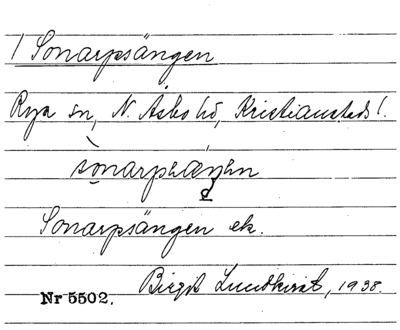 1 Sonarpsängen
Rya sn, N. Åsbo hd, Kristianstads l.
Sonarpsängen ek.
Birgit Lundkvist, 1938.
Nr 5502.